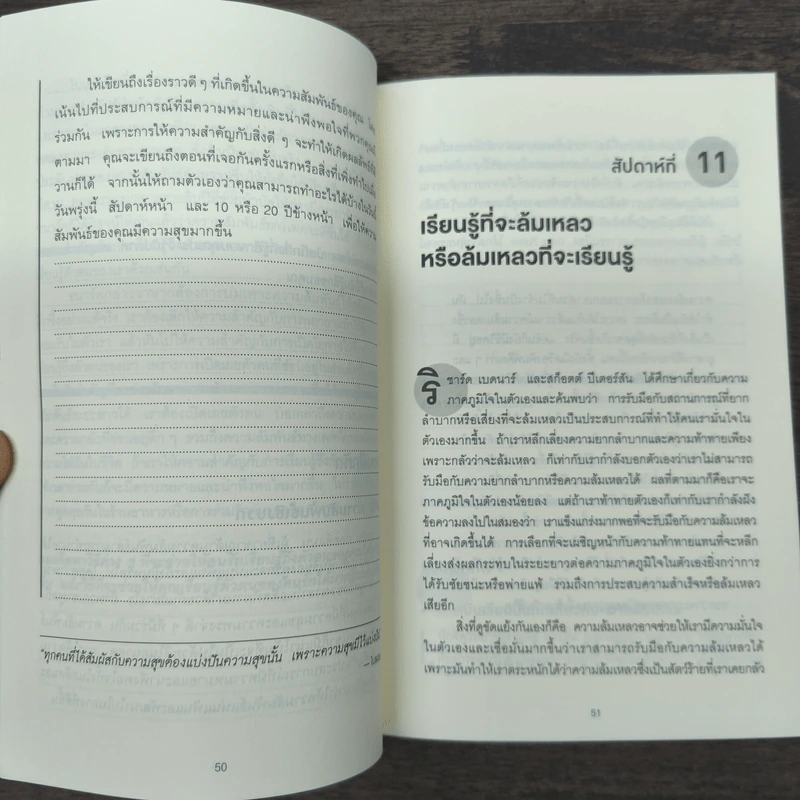 ให้เขียนถึงเรื่องราวดี ๆ ที่เกิดขึ้นในความสัมพันธ์ของคุณ
เน้นไปที่ประสบการณ์ที่มีความหมายและน่าพึงพอใจที่พวกคุณมี
ร่วมกัน เพราะการให้ความสำคัญกับสิ่งดี ๆ จะทำให้เกิดผลลัพธ์ที่ดี
ตามมา คุณจะเขียนถึงตอนที่เจอกันครั้งแรกหรือสิ่งที่เพิ่งทำไปเมื่อ
วานก็ได้ จากนั้นให้ถามตัวเองว่าคุณสามารถทำอะไรได้บ้างในวันนี้
วันพรุ่งนี้ สัปดาห์หน้า และ 10 หรือ 20 ปีข้างหน้า เพื่อให้ความ
สัมพันธ์ของคุณมีความสุขมากขึ้น
"ทุกคนที่ได้สัมผัสกับความสุขต้องแบ่งปันความสุขนั้น เพราะความสุขมีไว้แบ่งปัน"
50
สัปดาห์ที่ 11
เรียนรู้ที่จะล้มเหลว
หรือล้มเหลวที่จะเรียนรู้
ริชาร์ด เบดนาร์ และสก็อตต์ ปีเตอร์สัน ได้ศึกษาเกี่ยวกับความ
ภาคภูมิใจในตัวเองและค้นพบว่า การรับมือกับสถานการณ์ที่ยาก
ลำบากหรือเสี่ยงที่จะล้มเหลวเป็นประสบการณ์ที่ทำให้คนเรามั่นใจใน
ตัวเองมากขึ้น ถ้าเราหลีกเลี่ยงความยากลำบากและความท้าทายเพียง
เพราะกลัวว่าจะล้มเหลว ก็เท่ากับเรากำลังบอกตัวเองว่าเราไม่สามารถ
รับมือกับความยากลำบากหรือความล้มเหลวได้ ผลที่ตามมาก็คือเราจะ
ภาคภูมิใจในตัวเองน้อยลง แต่ถ้าเราท้าทายตัวเองก็เท่ากับเรากำลังฝัง
ข้อความลงไปในสมองว่า เราแข็งแกร่งมากพอที่จะรับมือกับความล้มเหลว
ที่อาจเกิดขึ้นได้ การเลือกที่จะเผชิญหน้ากับความท้าทายแทนที่จะหลีก
เลี่ยงส่งผลกระทบในระยะยาวต่อความภาคภูมิใจในตัวเองยิ่งกว่าการ
ได้รับชัยชนะหรือพ่ายแพ้ รวมถึงการประสบความสำเร็จหรือล้มเหลว
เสียอีก
สิ่งที่ดูขัดแย้งกันเองก็คือ ความล้มเหลวอาจช่วยให้เรามีความมั่นใจ
ในตัวเองและเชื่อมั่นมากขึ้นว่าเราสามารถรับมือกับความล้มเหลวได้
เพราะมันทำให้เราตระหนักได้ว่าความล้มเหลวซึ่งเป็นสัตว์ร้ายที่เราเคยกลัว
51